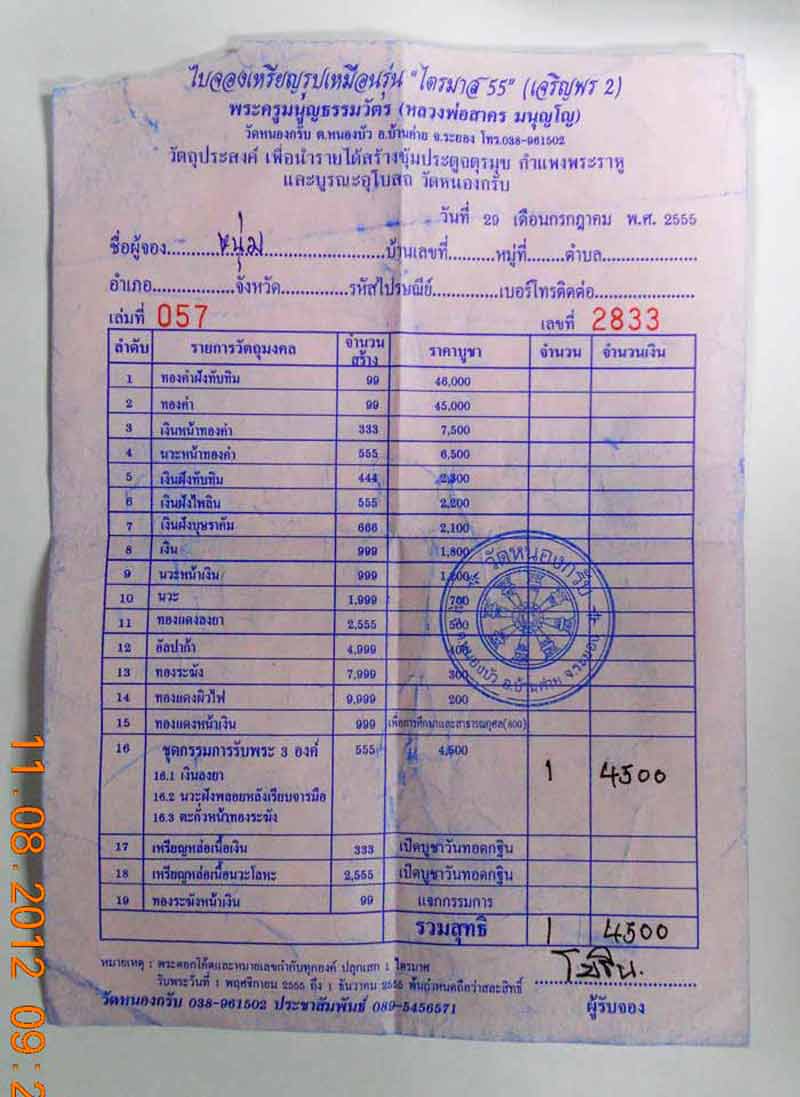 ใบจองเหรียญรูปเหมือนรุ่น "ไตรมาส 55" (เจริญพร 2)
พระครูมนูญธรรมวัตร (หลวงพ่อสาคร มนุญโญ)
วัดหนองกรับ ต.หนองบัว อ.บ้านค่าย จ.ระยอง โทร.038-961502
วัตถุประสงค์ เพื่อนำรายได้สร้างซุ้มประตูจตุรมุข กำแพงพระราหู
และบูรณะอุโบสถ วัดหนองกรับ
วันที่ 29 เดือนกรกฎาคม พ.ศ. 2555
ชื่อผู้จอง.....หนุ่ม.....บ้านเลขที่.....หมู่ที่.....ตำบล.....
อำเภอ.....จังหวัด.....รหัสไปรษณีย์.....เบอร์โทรติดต่อ.....
เล่มที่ 057 เลขที่ 2833
ลำดับ รายการวัตถุมงคล จำนวนสร้าง ราคาบูชา จำนวน จำนวนเงิน
1 ทองคำฝังทับทิม 99 46,000
2 ทองคำ 99 45,000
3 เงินหน้าทองคำ 333 7,500
4 นวะหน้าทองคำ 555 6,500
5 เงินฝังทับทิม 444 2,300
6 เงินฝังไพลิน 555 2,200
7 เงินฝังบุษราคัม 666 2,100
8 เงิน 999 1,800
9 นวะหน้าเงิน 999
10 นวะ 1,999 700
11 ทองแดงลงยา 2,555 500
12 อัลปาก้า 4,999 400
13 ทองระฆัง 7,999 300
14 ทองแดงผิวไฟ 9,999 200
15 ทองแดงหน้าเงิน 999 เพื่อการศึกษาและสาธารณกุศล(800)
16 ชุดกรรมการรับพระ 3 องค์ 555 4,500 1 4500
16.1 เงินลงยา
16.2 นวะฝังพลอยหลังเรียบจารมือ
16.3 ตะกั่วหน้าทองระฆัง
17 เหรียญหล่อเนื้อเงิน 333 เปิดบูชาวันทอดกฐิน
18 เหรียญหล่อเนื้อนวะโลหะ 2,555 เปิดบูชาวันทอดกฐิน
19 ทองระฆังหน้าเงิน 99 แจกกรรมการ
รวมสุทธิ 1 4500
หมายเหตุ : พระตอกโค้ดและหมายเลขกำกับทุกองค์ ปลุกเสก 1 ไตรมาศ
รับพระวันที่ 1 พฤศจิกายน 2555 ถึง 1 ธันวาคม 2555 พ้นกำหนดถือว่าสละสิทธิ์
วัดหนองกรับ 038-961502 ประชาสัมพันธ์ 089-5456571
ผู้รับจอง
วัดหนองกรับ
ต.หนองบัว อ.บ้านค่าย จ.ระยอง
11.08.2012 09:2